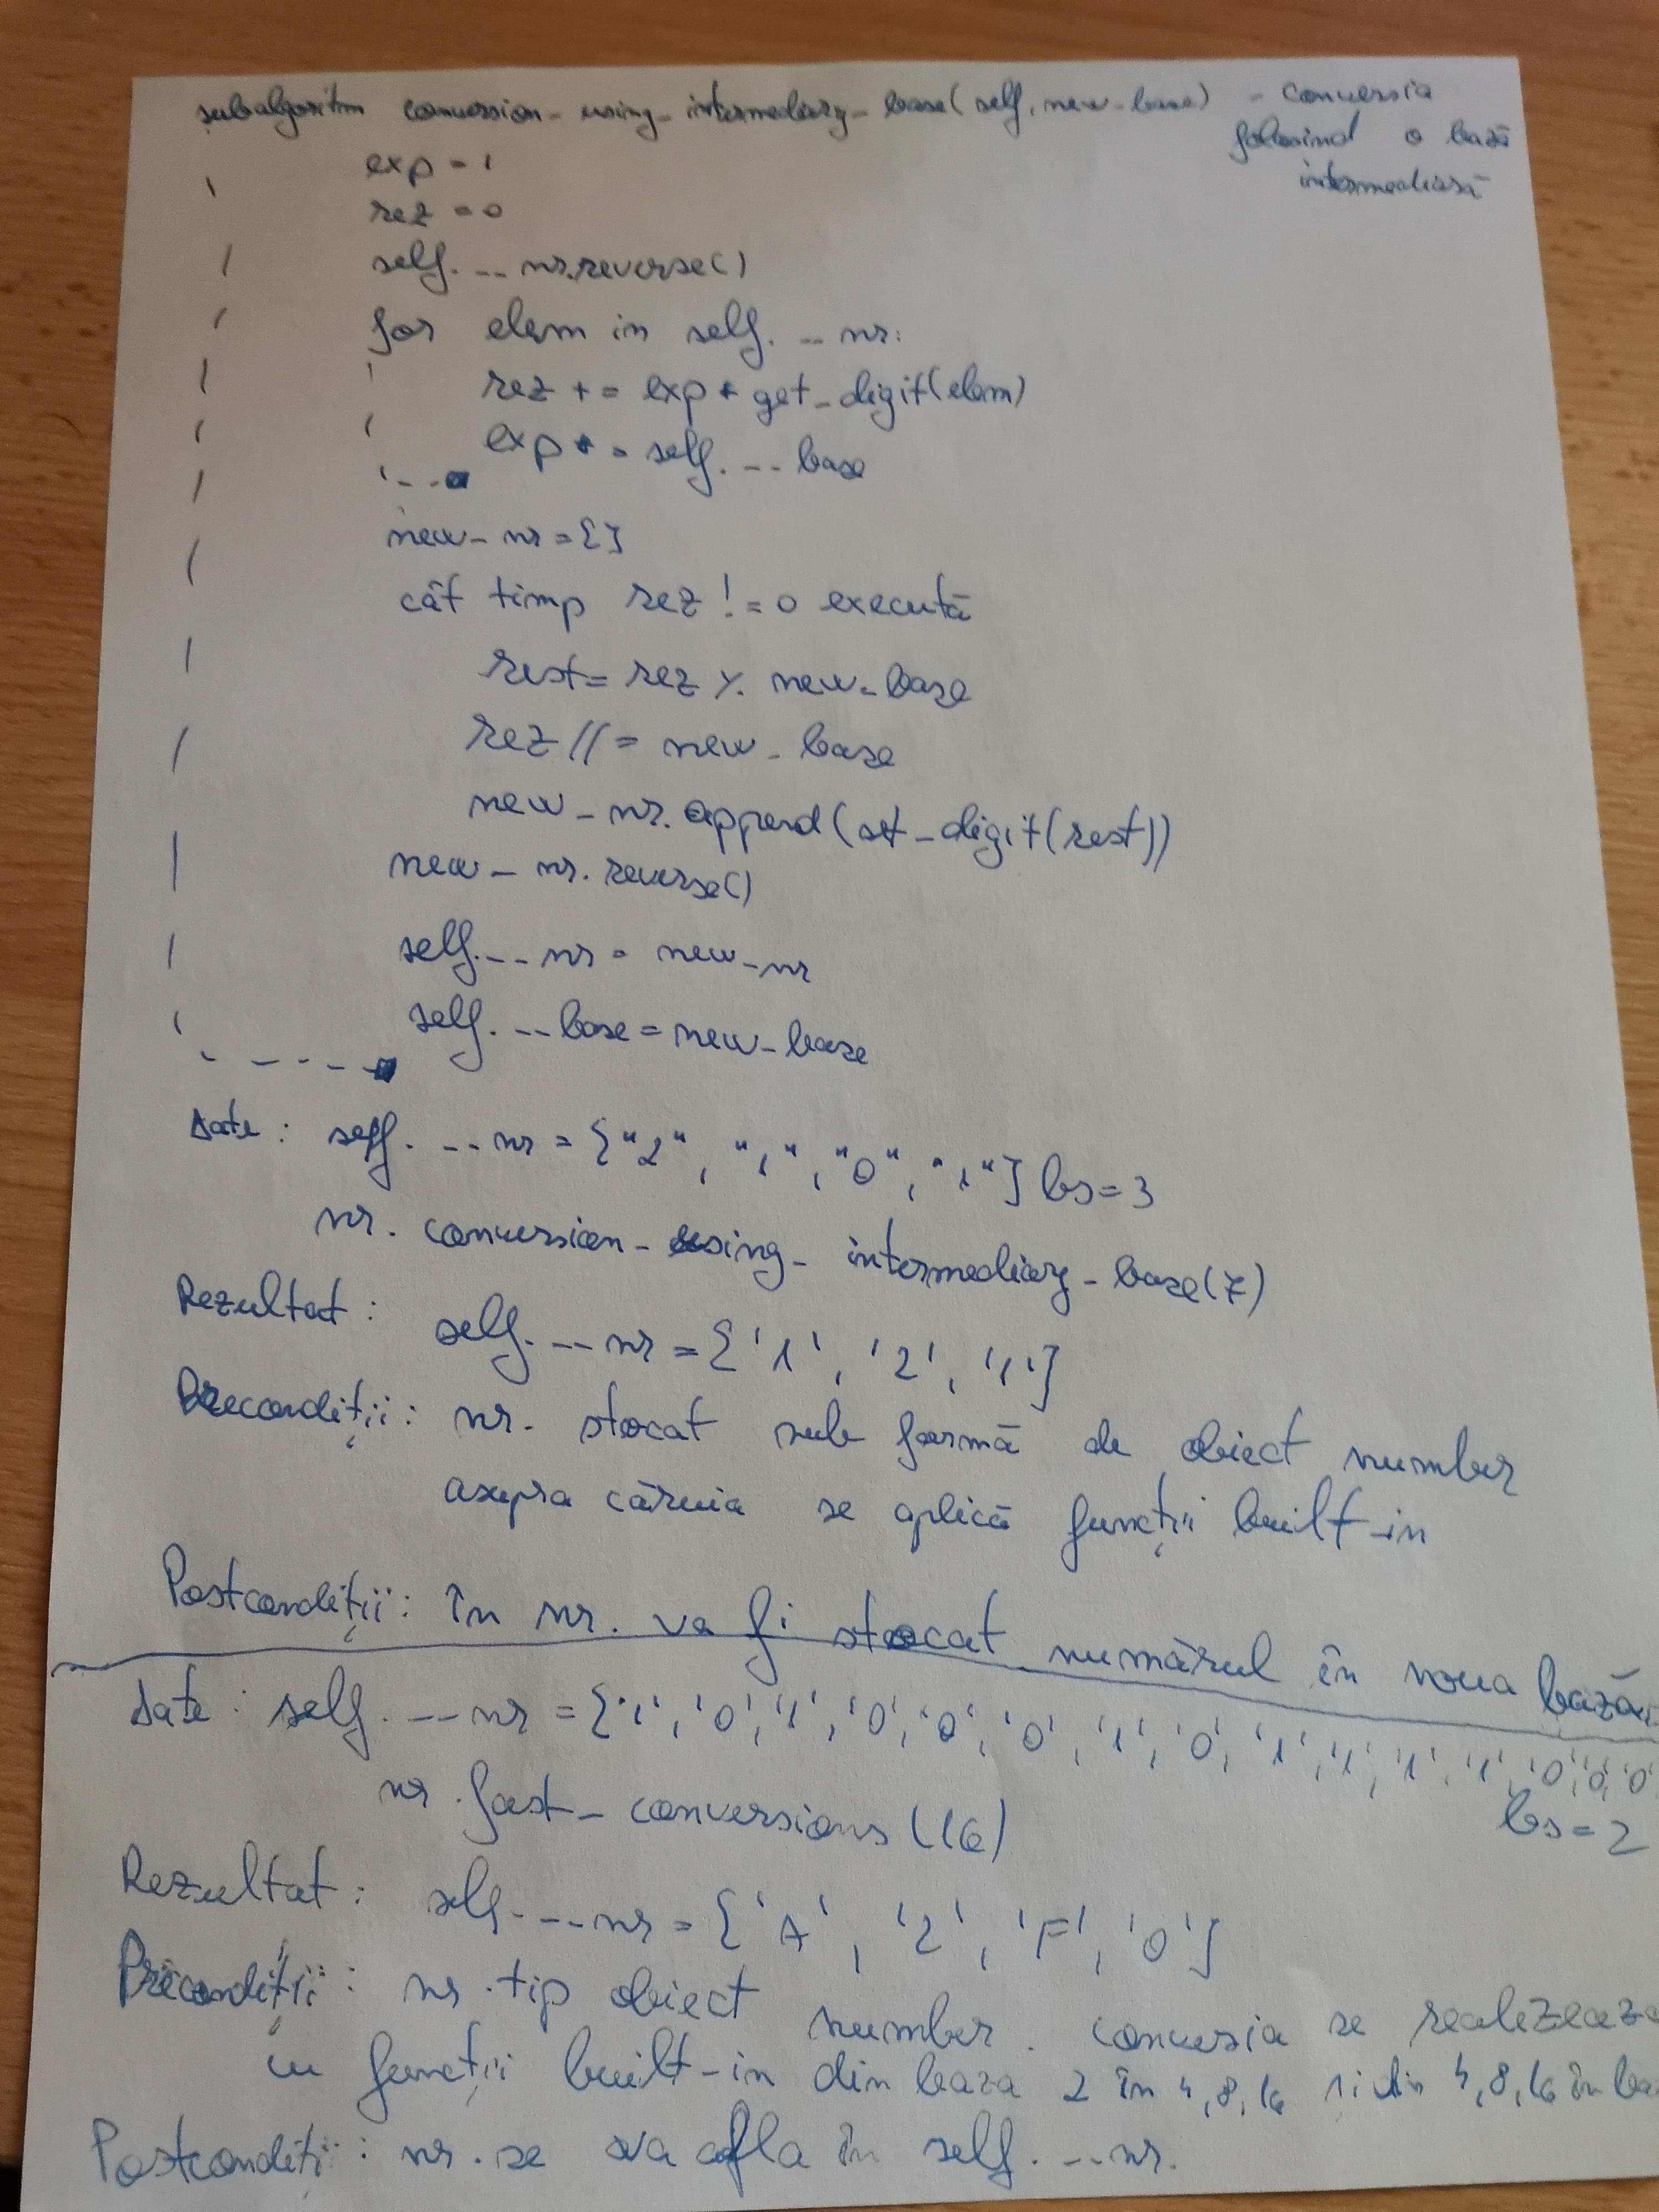 subalgoritm conversion_using_intermediary_base(self, new_base) - conversia
folosind o bază
intermediară
exp = 1
rez = 0
self.__nr.reverse()
for elem in self.__nr:
rez += exp * get_digit(elem)
exp *= self.__base
new_nr = []
cât timp rez != 0 execută
rest = rez % new_base
rez //= new_base
new_nr.append(set_digit(rest))
new_nr.reverse()
self.__nr = new_nr
self.__base = new_base
Date: self.__nr = ["2", "1", "0", "1"] bs=3
nr. conversion_using_intermediary_base(7)
Rezultat: self.__nr = ['1', '2', '1']
Precondiții: nr. stocat sub formă de obiect number
asupra căruia se aplică funcții built-in
Postcondiții: în nr. va fi stocat numărul în noua bază
Date: self.__nr = ['1', '0', '1', '0', '0', '0', '1', '0', '1', '1', '1', '1', '0', '0', '0'
bs=2
nr.fast_conversions(16)
Rezultat: self.__nr = ['A', '2', 'F', '0']
Precondiții: nr. tip obiect number. conversia se realizează
cu funcții built-in din baza 2 în 4,8,16 și din 4,8,16 în
Postcondiții: nr. se va afla în self.__nr.